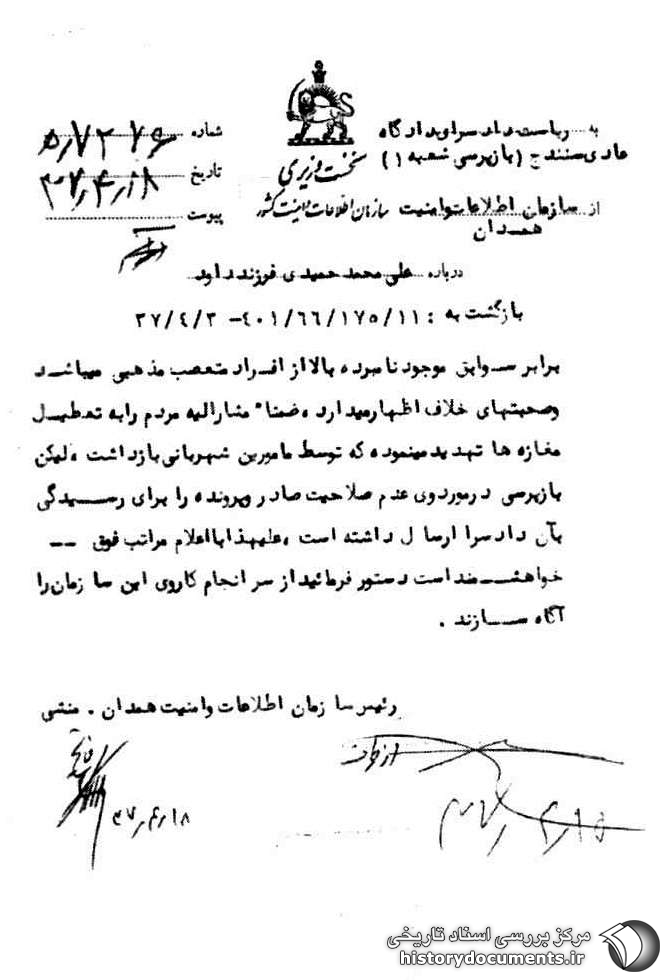 به ریاست دادسرای دادگاه
عادی سنندج (بازپرسی شعبه ۱)
نخست وزیری
از سازمان اطلاعات و امنیت سازمان اطلاعات و امنیت کشور
همدان
شماره
تاریخ ۳۷٫۴٫۱۸
پیوست
درباره علی محمد حمیدی فرزند داود
بازگشت به : ۴۰۱/۶۶/۱۷۵/۱۱- ۳۷/۴/۳
برابر سوابق موجود نامبرده بالا از افراد متعصب مذهبی میباشد
وصحبتهای خلاف اظهارمیدارد ،ضمنا" مشارالیه مردم رابه تعطیل
مغازه ها تهدید مینموده که توسط مامورین شهربانی بازداشت ،لیکن
بازپرسی درمورد وی عدم صلاحیت صادر وپرونده را برای رسیدگی
بآن دادسرا ارسال داشته است ،علیهذا بااعلام مراتب فوق --
خواهشمند است دستور فرمائید از سر انجام کاروی این سا زمان را
آگاه سازند .
رئیس سا زمان اطلاعات وامنیت همدان . منشی
۳۷٫۴٫۱۸
۳۷٫۴٫۱۵
مرکز بررسی اسناد تاریخی
historydocuments.ir